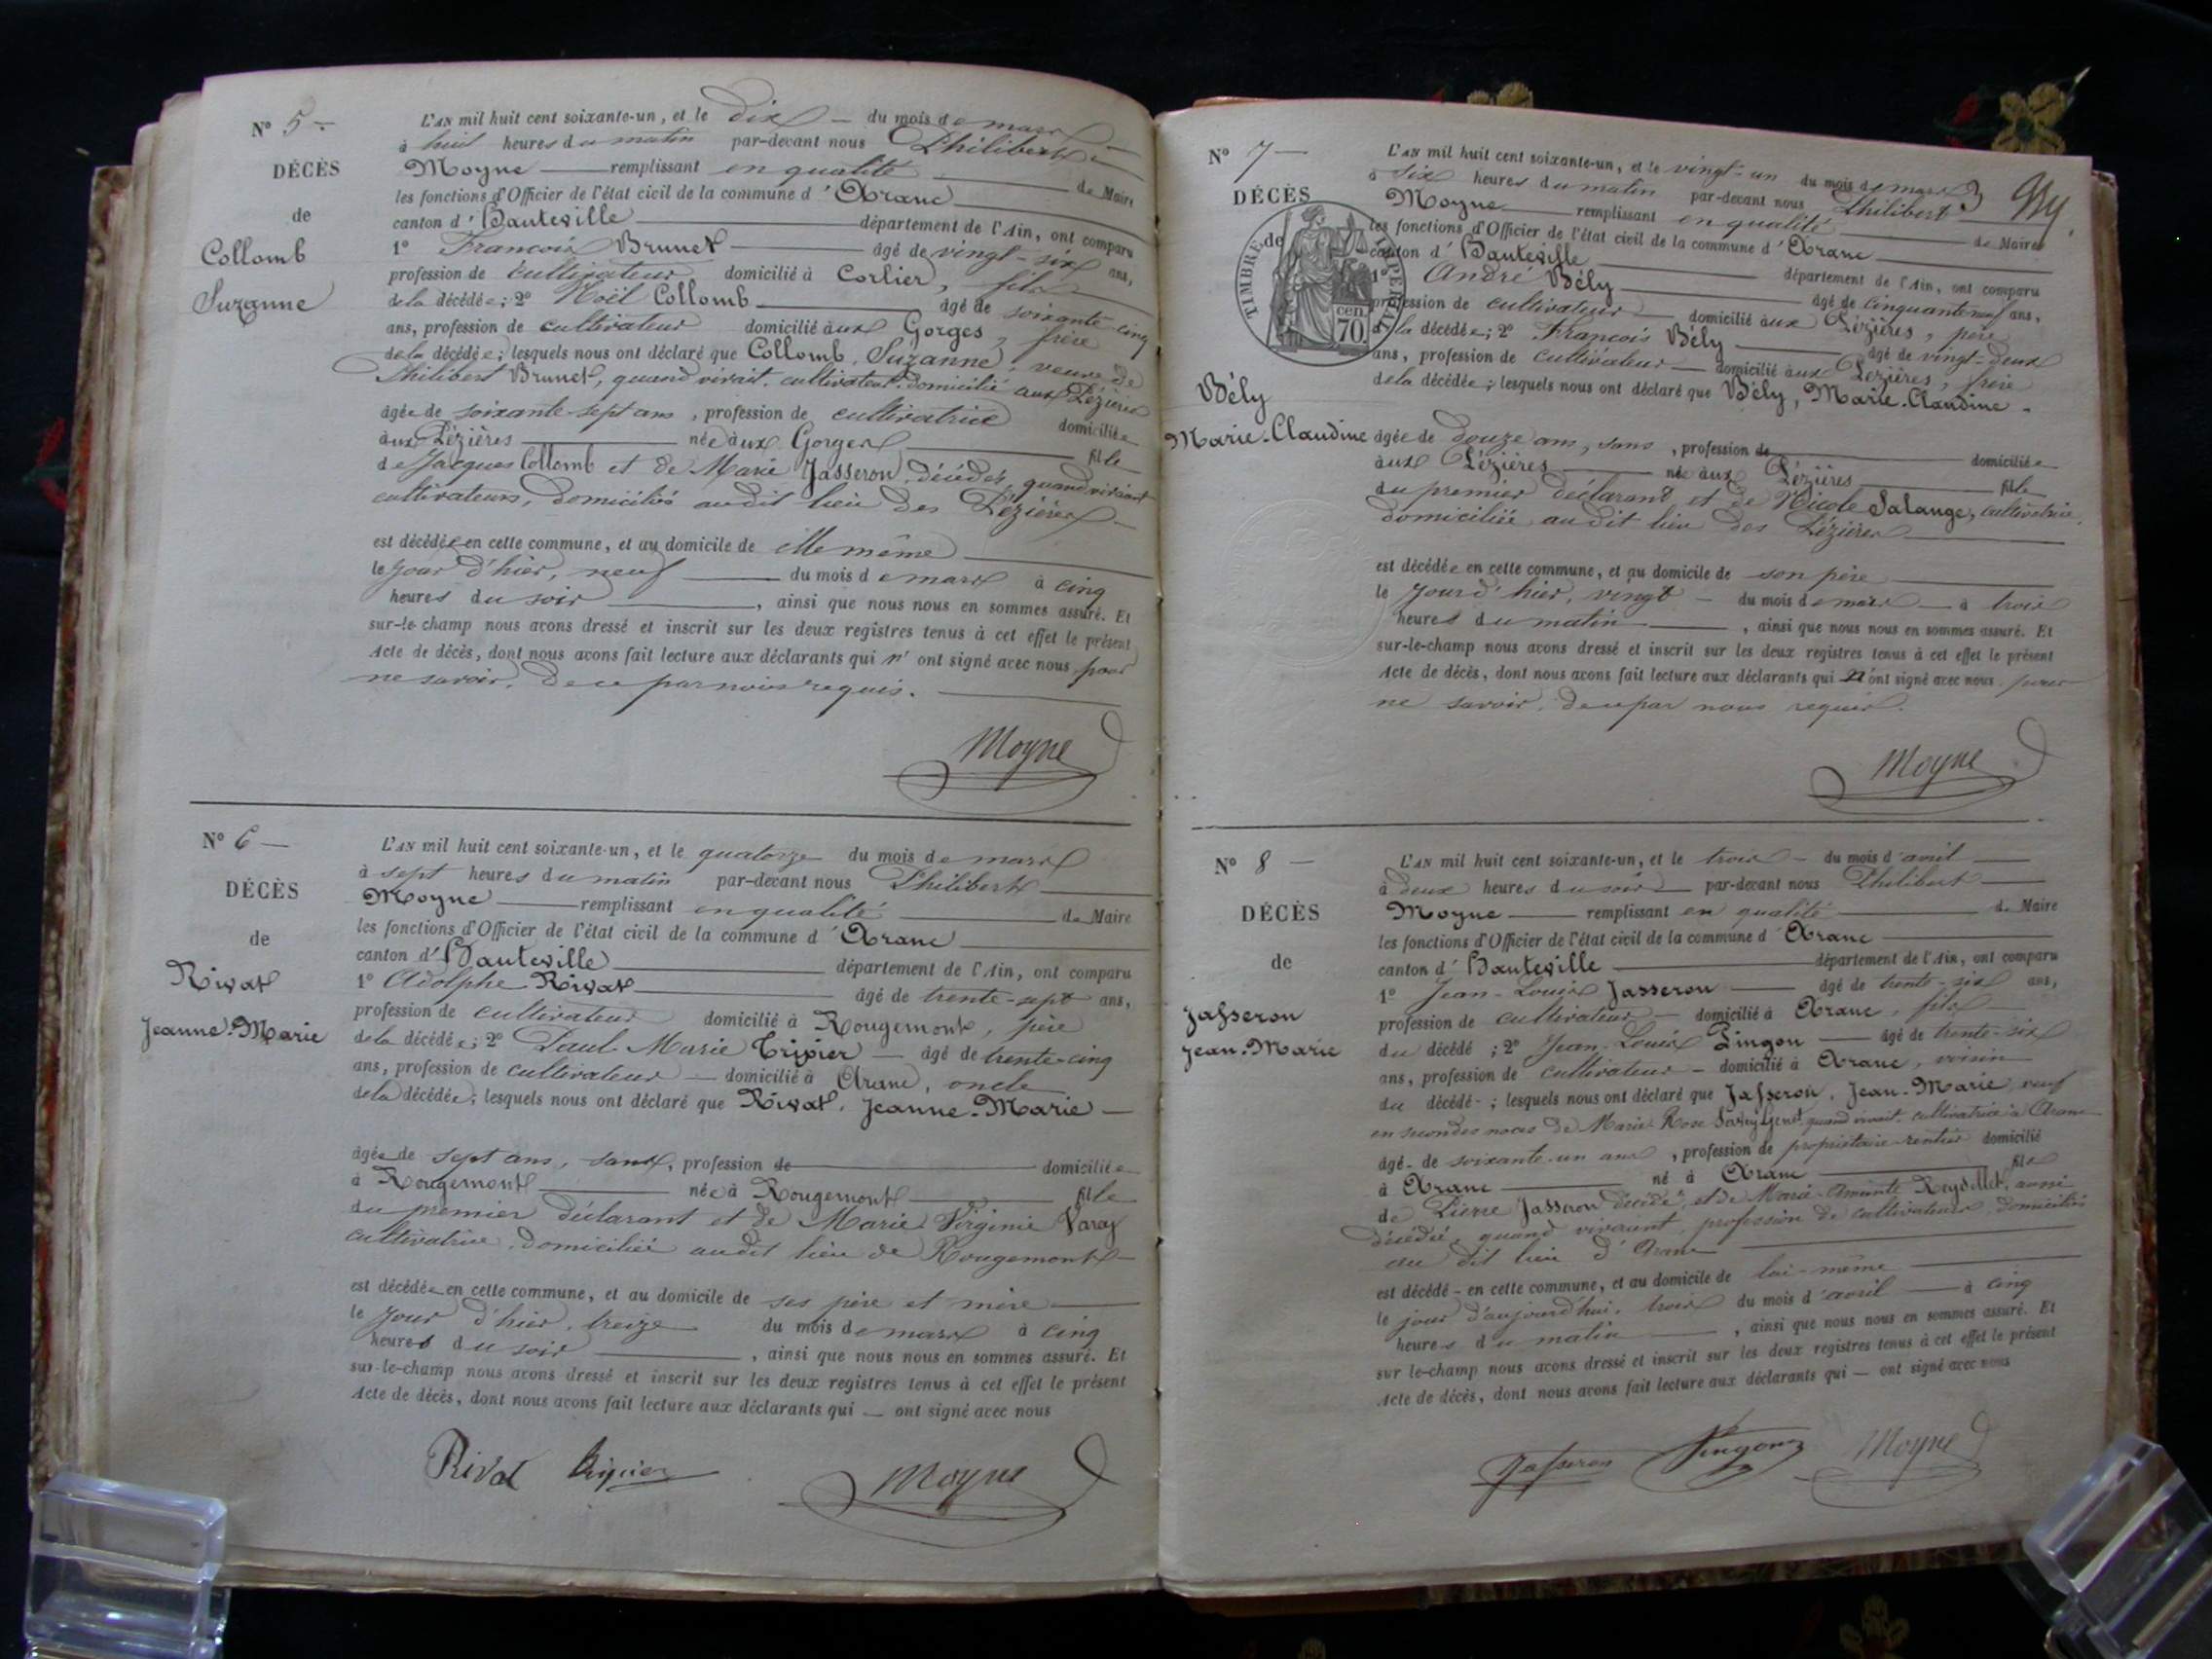 N° 5
DÉCÈS
de
Collomb
Suzanne
L'AN mil huit cent soixante-un, et le dix du mois de mars
à huit heures du matin par-devant nous Philibert
Moyne remplissant en qualité de Maire
les fonctions d'Officier de l'état civil de la commune d'Aranc
canton d'Hauteville département de l'Ain, ont comparu
1° François Brunet âgé de vingt-six ans,
profession de cultivateur domicilié à Corlier, fils
de la décédée; 2° Noël Collomb âgé de soixante-cinq
ans, profession de cultivateur domicilié aux Gorges, frère
de la décédée; lesquels nous ont déclaré que Collomb, Suzanne, veuve de
Philibert Brunet, quand vivait, cultivateur domicilié aux Lézières
âgée de soixante-sept ans, profession de cultivatrice domiciliée
aux Lézières née aux Gorges fille
de Jacques Collomb et de Marie Jasseron, décédés, quand vivaient
cultivateurs, domiciliés audit lieu des Lézières
est décédée en cette commune, et au domicile de elle même
le jour d'hier, neuf du mois de mars à cinq
heures du soir, ainsi que nous nous en sommes assuré. Et
sur-le-champ nous avons dressé et inscrit sur les deux registres tenus à cet effet le présent
Acte de décès, dont nous avons fait lecture aux déclarants qui n'ont signé avec nous pour
ne savoir, de ce par nous requis.
Moyne
N° 6
DÉCÈS
de
Rivat
Jeanne-Marie
L'AN mil huit cent soixante-un, et le quatorze du mois de mars
à sept heures du matin par-devant nous Philibert
Moyne remplissant en qualité de Maire
les fonctions d'Officier de l'état civil de la commune d'Aranc
canton d'Hauteville département de l'Ain, ont comparu
1° Adolphe Rivat âgé de trente-sept ans,
profession de cultivateur domicilié à Rougemont, père
de la décédée; 2° Paul-Marie Tripier âgé de trente-cinq
ans, profession de cultivateur domicilié à Aranc, oncle
de la décédée; lesquels nous ont déclaré que Rivat, Jeanne-Marie
âgée de sept ans, sans, profession de domiciliée
à Rougemont née à Rougemont fille
du premier déclarant et de Marie Virginie Varay
cultivatrice, domiciliée audit lieu de Rougemont
est décédée en cette commune, et au domicile de ses père et mère
le jour d'hier, treize du mois de mars à cinq
heures du soir, ainsi que nous nous en sommes assuré. Et
sur-le-champ nous avons dressé et inscrit sur les deux registres tenus à cet effet le présent
Acte de décès, dont nous avons fait lecture aux déclarants qui — ont signé avec nous
Rivat Tripier Moyne
3
N° 7
DÉCÈS
de
TIMBRE IMPÉRIAL
70 cen.
Bély
Marie-Claudine
L'AN mil huit cent soixante-un, et le vingt-un du mois de mars
à six heures du matin par-devant nous Philibert
Moyne remplissant en qualité de Maire
les fonctions d'Officier de l'état civil de la commune d'Aranc
canton d'Hauteville département de l'Ain, ont comparu
1° André Bély âgé de cinquante neuf ans,
profession de cultivateur domicilié aux Lézières, père
de la décédée; 2° François Bély âgé de vingt-deux
ans, profession de cultivateur domicilié aux Lézières, frère
de la décédée; lesquels nous ont déclaré que Bély, Marie-Claudine
âgée de douze ans, sans, profession de domiciliée
aux Lézières née aux Lézières fille
du premier déclarant et de Nicole Salange, cultivatrice,
domiciliée audit lieu des Lézières
est décédée en cette commune, et au domicile de son père
le jour d'hier, vingt du mois de mars à trois
heures du matin, ainsi que nous nous en sommes assuré. Et
sur-le-champ nous avons dressé et inscrit sur les deux registres tenus à cet effet le présent
Acte de décès, dont nous avons fait lecture aux déclarants qui n'ont signé avec nous, pour
ne savoir, de ce par nous requis.
Moyne
N° 8
DÉCÈS
de
Jasseron
Jean-Marie
L'AN mil huit cent soixante-un, et le trois du mois d'avril
à deux heures du soir par-devant nous Philibert
Moyne remplissant en qualité de Maire
les fonctions d'Officier de l'état civil de la commune d'Aranc
canton d'Hauteville département de l'Ain, ont comparu
1° Jean-Louis Jasseron âgé de trente-six ans,
profession de cultivateur domicilié à Aranc, fils
du décédé; 2° Jean-Louis Pingon âgé de trente-six
ans, profession de cultivateur domicilié à Aranc, voisin
du décédé; lesquels nous ont déclaré que Jasseron, Jean-Marie, veuf
en secondes noces de Marie-Rose quand vivait, cultivatrice à Aranc
âgé de soixante-un ans, profession de propriétaire-rentier domicilié
à Aranc né à Aranc fils
de Pierre Jasseron décédé, et de Marie-Aimante Reydellet, aussi
décédée, quand vivaient, profession de cultivateurs domiciliés
au dit lieu d'Aranc
est décédé en cette commune, et au domicile de lui-même
le jour d'aujourd'hui, trois du mois d'avril à cinq
heures du matin, ainsi que nous nous en sommes assuré. Et
sur-le-champ nous avons dressé et inscrit sur les deux registres tenus à cet effet le présent
Acte de décès, dont nous avons fait lecture aux déclarants qui — ont signé avec nous
Jasseron Pingon Moyne